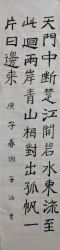 天門中断楚江開碧水東流至
此迴兩岸青山相對出孤帆一
片日邊来
庚子春